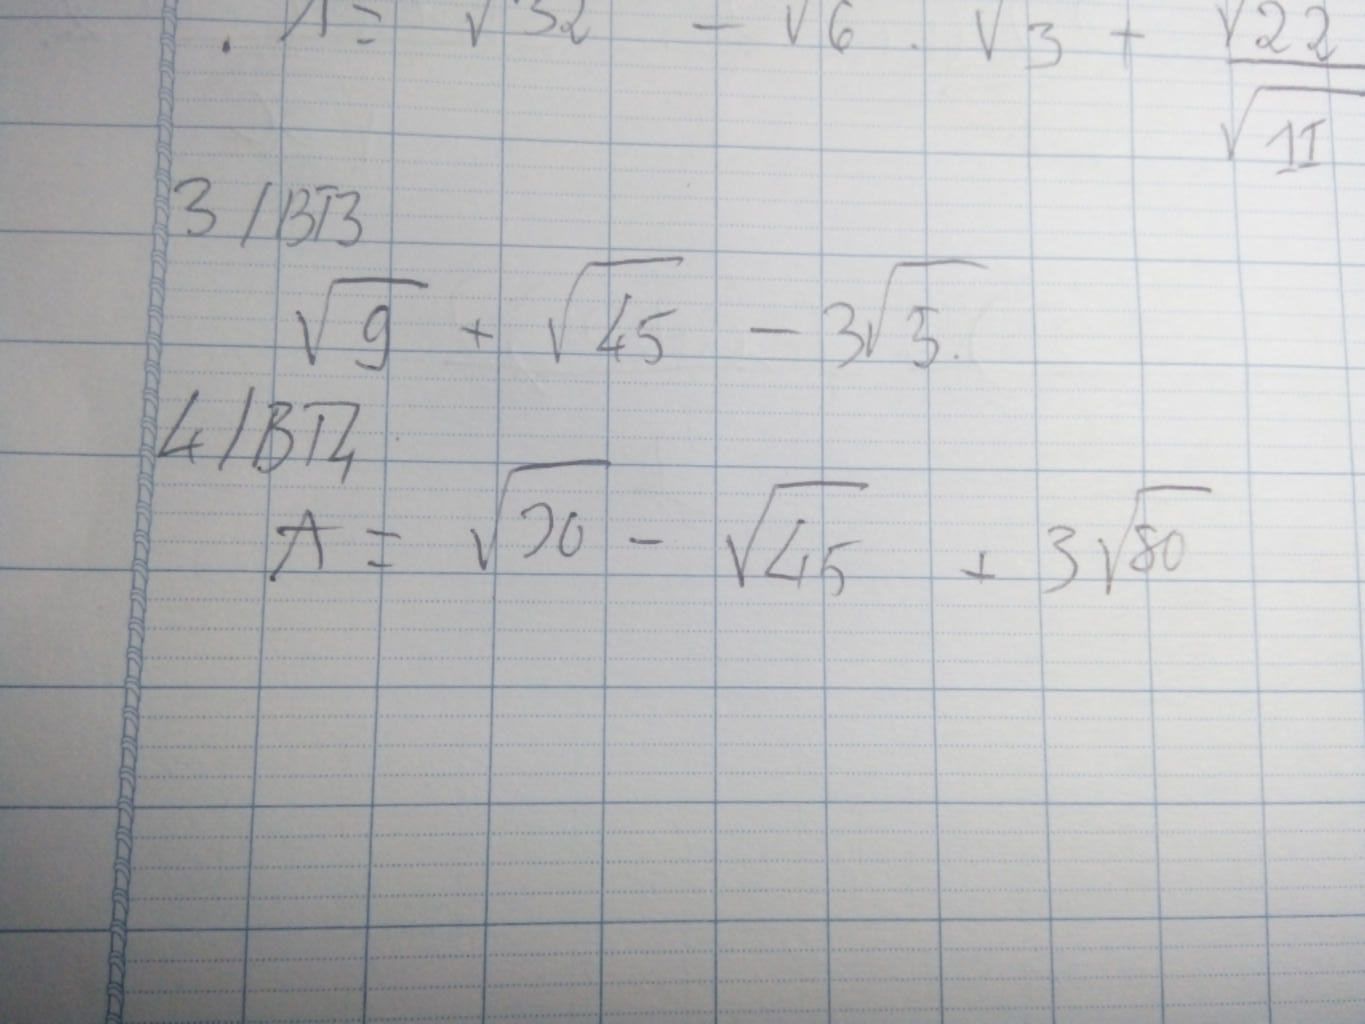 A = √32 - √6 . √3 + √22 / √11
3/BT3
√9 + √45 - 3√5.
4/BT4
A = √20 - √45 + 3√80